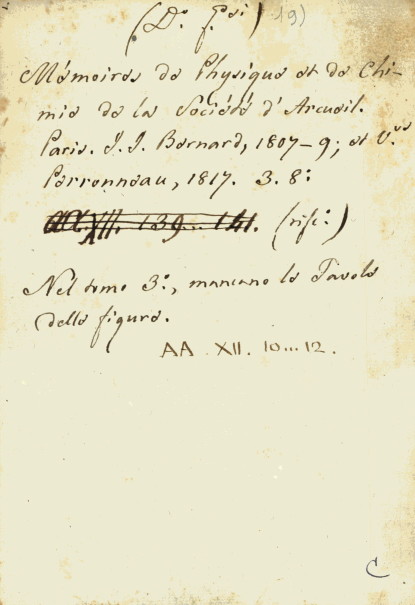 (D.º f. Gesi) 19)
Mémoires de Physique et de Chi-
mie de la Société d'Arcueil.
Paris. J. J. Bernard, 1807-9; et V.ᵉ
Perronneau, 1817. 3. 8.º
AA. XII. 139...141. (risc.º)
Nel tomo 3.º, mancano le Tavole
delle figure.
AA. XII. 10...12.
C